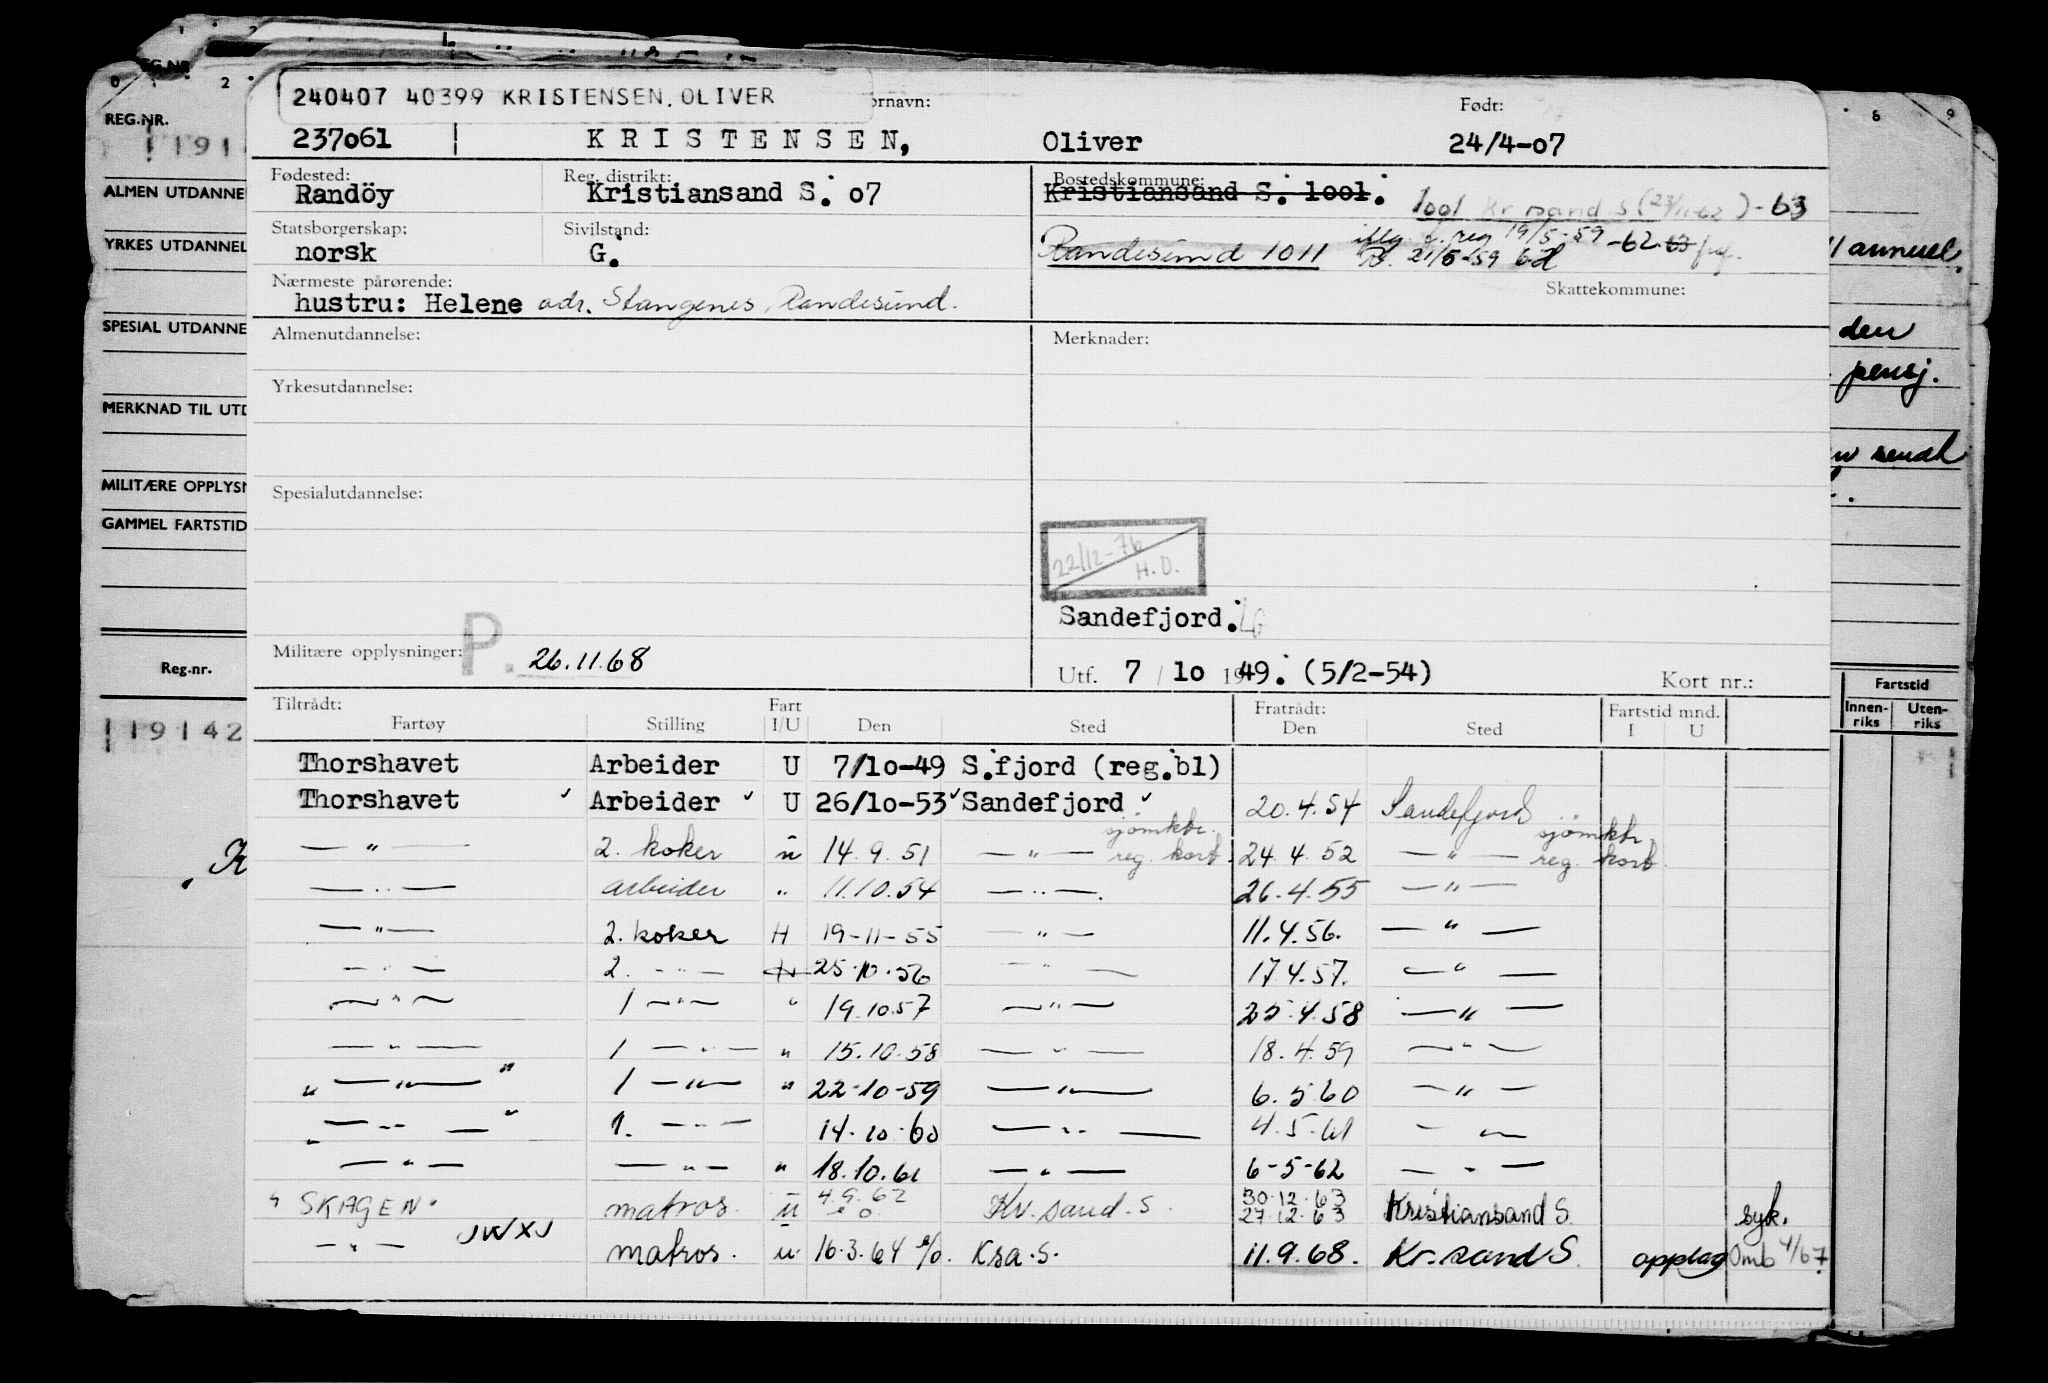 240407 40399 KRISTENSEN, OLIVER
ornavn: Født:
237061 KRISTENSEN, Oliver 24/4-07
Fødested: Reg. distrikt: Bostedskommune:
Randöy Kristiansand S. 07 Kristiansand S. 1001. 1001 Kr sand S (23/11-62) - 63
Statsborgerskap: Sivilstand:
norsk G. Randesund 1011 reg 19/5-59 -62
21/5-59
Nærmeste pårørende: Skattekommune:
hustru: Helene adr. Stangenes, Randesund.
Almenutdannelse: Merknader:
Yrkesutdannelse:
Spesialutdannelse:
22/12-76
H.D.
Sandefjord.
Militære opplysninger: P. 26.11.68 Utf. 7 / 10 1949. (5/2-54) Kort nr.:
Tiltrådt: Fart Fratrådt: Fartstid mnd.
Fartøy Stilling I/U Den Sted Den Sted I U
Thorshavet Arbeider U 7/10-49 S.fjord (reg.bl)
Thorshavet ✓ Arbeider ✓ U 26/10-53 ✓ Sandefjord ✓ 20.4.54 Sandefjord
sjömktr. sjömktr.
— " — 2. koker u 14.9.51 — " — reg. kort. 24.4.52 — " — reg. kort.
— " — arbeider " 11.10.54 — " — 26.4.55 — " —
— " — 2. koker H 19-11-55 — " — 11.4.56. — " —
— " — 2. — " — 25.10.56 — " — 17.4.57. — " —
— " — 1 — " — " 19.10.57 — " — 25.4.58 — " —
— " — 1 — " — " 15.10.58 — " — 18.4.59 — " —
" — " — " 1 — " — " 22-10-59 — " — 6.5.60 — " —
" — " — " 1. — " — 14.10.60 — " — 4.5.61 — " —
— " — — " — " 18.10.61 — " — 6-5-62 — " —
" SKAGEN" matros. u 4.9.62 Kr.sand.S. 30.12.63 Kristiansand S. syk.
27.12.63
— " — JWXJ matros. u. 16.3.64 Ksa.S. 11.9.68. Kr.sand S. opplag Omb 4/67
REG.NR.
1914
ALMEN UTDANNE
YRKES UTDANNEL
SPESIAL UTDANNE
MERKNAD TIL UTD
MILITÆRE OPPLYSN
GAMMEL FARTSTID
Reg.-nr.
19142
annuel.
den
pensj.
sendt
Fartstid
Innen-riks Uten-riks